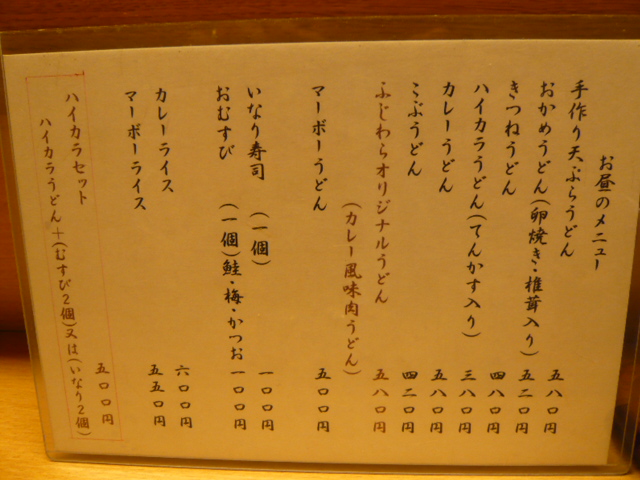 お昼のメニュー
手作り天ぷらうどん 五八〇円
おかめうどん(卵焼き・椎茸入り) 五二〇円
きつねうどん 四八〇円
ハイカラうどん(てんかす入り) 三八〇円
カレーうどん 五八〇円
こぶうどん 四二〇円
ふじわらオリジナルうどん 五八〇円
(カレー風味肉うどん)
マーボーうどん 五〇〇円
いなり寿司 (一個) 一〇〇円
おむすび (一個)鮭・梅・かつお 一〇〇円
カレーライス 六〇〇円
マーボーライス 五五〇円
ハイカラセット 五〇〇円
ハイカラうどん+(むすび2個)又は(いなり2個)